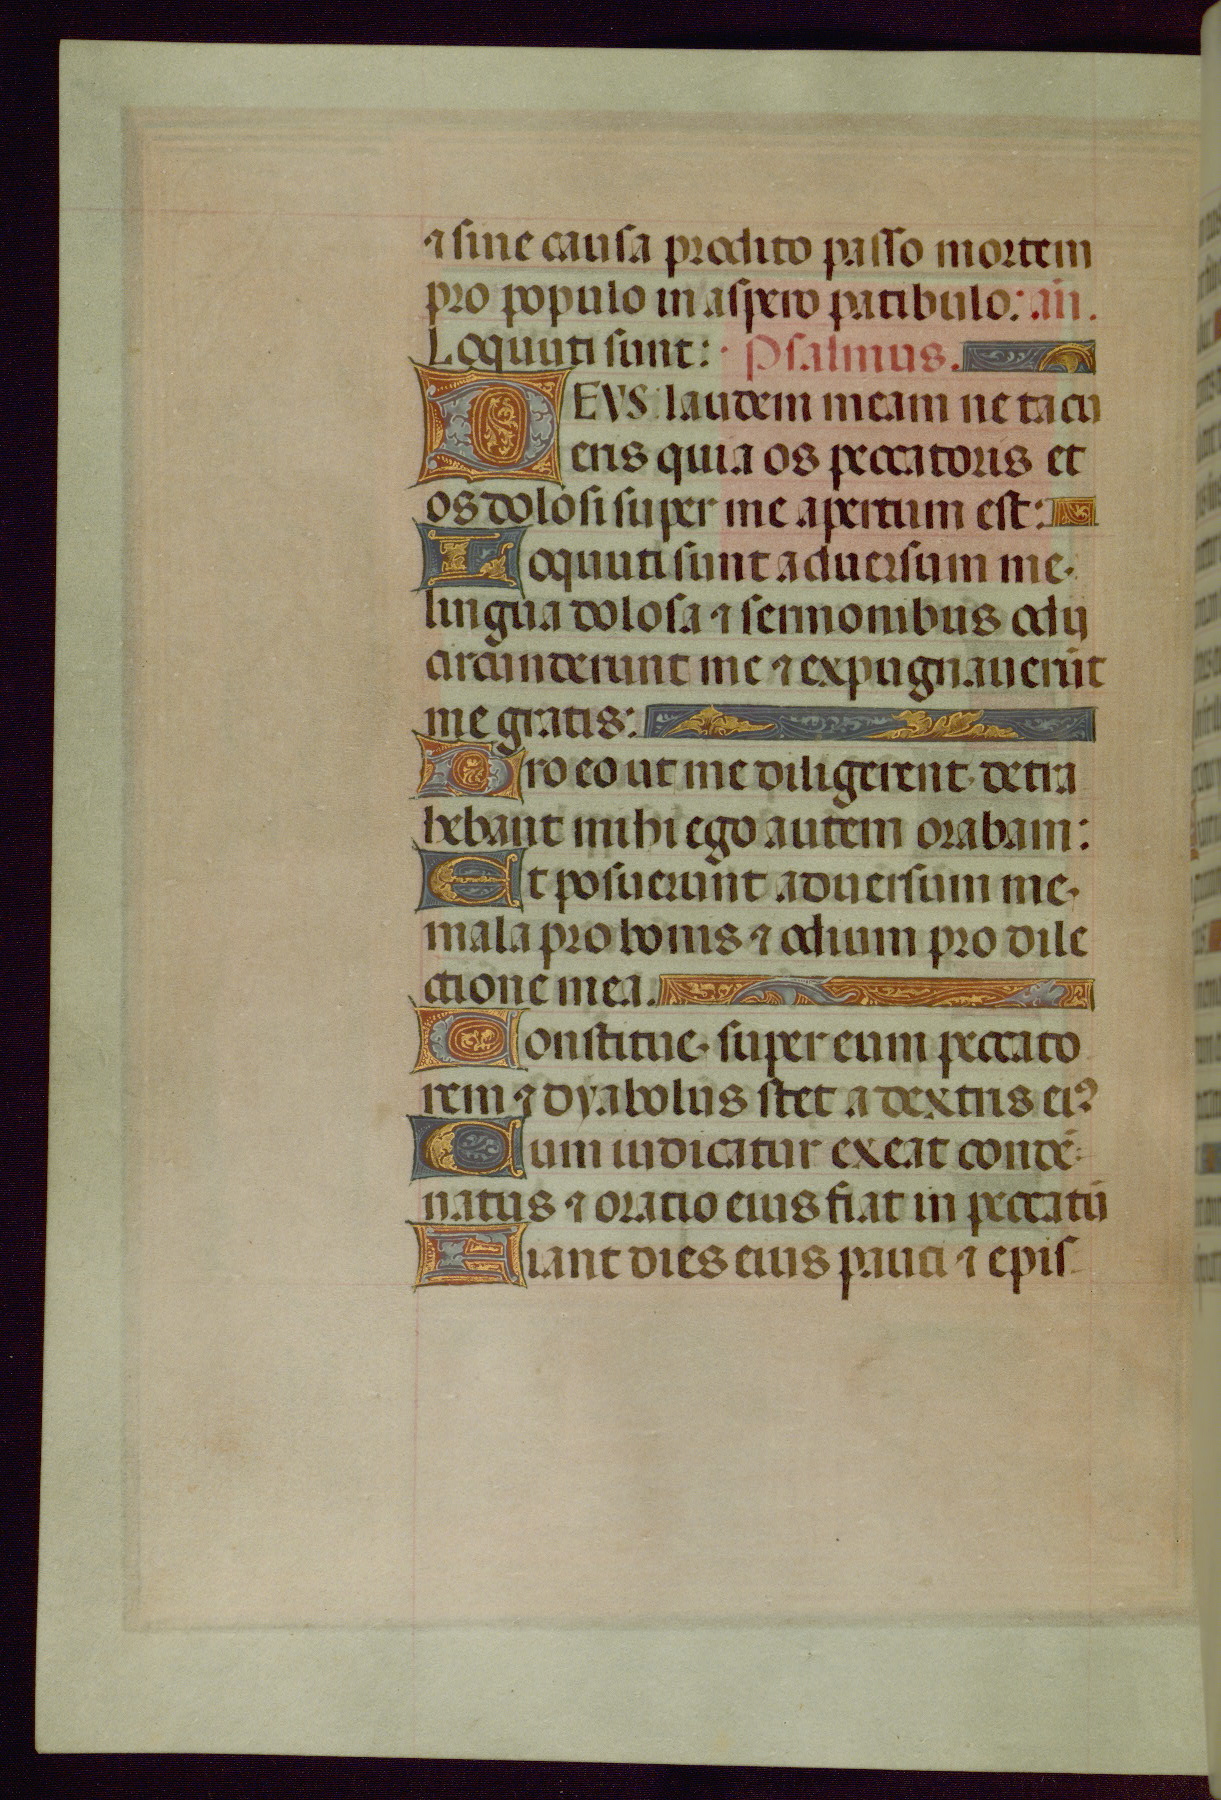 ⁊ sine causa prodito passo mortem
pro populo in aspero patibulo: añ.
Loquuti sunt: Psalmus.
DEVS laudem meam ne tacu
eris quia os peccatoris et
os dolosi super me apertum est:
Loquuti sunt aduersum me.
lingua dolosa ⁊ sermonibus odij
circumderunt me ⁊ expugnauerūt
me gratis:
Pro eo ut me diligerent. detra
hebant mihi ego autem orabam:
Et posuerunt aduersum me.
mala pro bonis ⁊ odium pro dile
ctione mea.
Constitue. super eum peccato
rem ⁊ dyabolus stet a dextris ei⁹
Cum iudicatur exeat condē
natus ⁊ oratio eius fiat in peccatū
Fiant dies eius pauci ⁊ epis